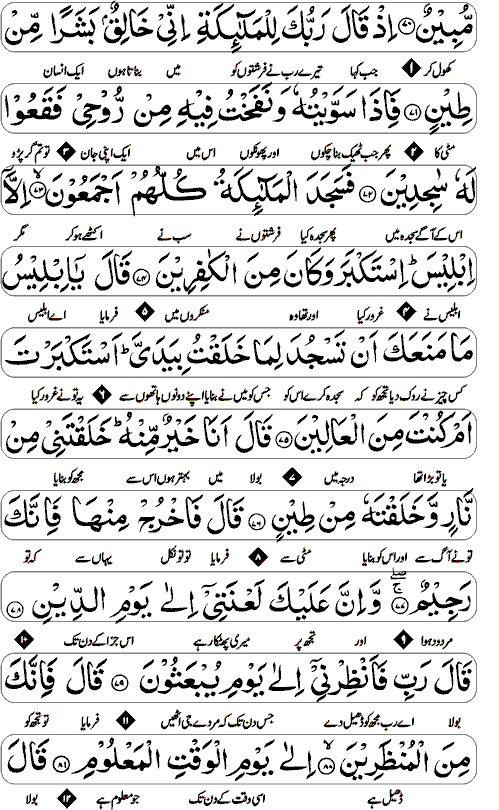 مُّبِيْنٌ ﴿۷۰﴾ اِذْ قَالَ رَبُّكَ لِلْمَلٰٓئِكَةِ اِنِّىْ خَالِقٌۢ بَشَرًا مِّنْ
کھول کر ۱ جب کہا تیرے رب نے فرشتوں کو میں بناتا ہوں ایک انسان
طِيْنٍ ﴿۷۱﴾ فَاِذَا سَوَّيْتُهٗ وَنَفَخْتُ فِيْهِ مِنْ رُّوْحِىْ فَقَعُوْا
مٹی کا ۲ پھر جب ٹھیک بنا چکوں اور پھونکوں اس میں ایک اپنی جان ۳ تو تم گر پڑو
لَهٗ سٰجِدِيْنَ ﴿۷۲﴾ فَسَجَدَ الْمَلٰٓئِكَةُ كُلُّهُمْ اَجْمَعُوْنَ ﴿۷۳﴾ اِلَّاۤ
اس کے آگے سجدہ میں پھر سجدہ کیا فرشتوں نے سب نے اکٹھے ہو کر مگر
اِبْلِيْسَ ؕ اِسْتَكْبَرَ وَكَانَ مِنَ الْكٰفِرِيْنَ ﴿۷۴﴾ قَالَ يٰۤاِبْلِيْسُ
ابلیس نے ۴ غرور کیا اور تھا وہ منکروں میں ۵ فرمایا اے ابلیس
مَا مَنَعَكَ اَنْ تَسْجُدَ لِمَا خَلَقْتُ بِيَدَىَّ ؕ اَسْتَكْبَرْتَ
کس چیز نے روک دیا تجھ کو کہ سجدہ کرے اس کو جس کو میں نے بنایا اپنے دونوں ہاتھوں سے ۶ یہ تو نے غرور کیا
اَمْ كُنْتَ مِنَ الْعَالِيْنَ ﴿۷۵﴾ قَالَ اَنَا خَيْرٌ مِّنْهُ ؕ خَلَقْتَنِىْ مِنْ
یا تو بڑا تھا درجہ میں ۷ بولا میں بہتر ہوں اس سے مجھ کو بنایا
نَّارٍ وَّخَلَقْتَهٗ مِنْ طِيْنٍ ﴿۷۶﴾ قَالَ فَاخْرُجْ مِنْهَا فَاِنَّكَ
تو نے آگ سے اور اس کو بنایا مٹی سے ۸ فرمایا تو تو نکل یہاں سے کہ تو
رَجِيْمٌ ﴿۷۷﴾ وَّاِنَّ عَلَيْكَ لَعْنَتِىْۤ اِلٰى يَوْمِ الدِّيْنِ ﴿۷۸﴾
مردود ہوا ۹ اور تجھ پر میری پھٹکار ہے اس جزا کے دن تک ۱۰
قَالَ رَبِّ فَاَنْظِرْنِىْۤ اِلٰى يَوْمِ يُبْعَثُوْنَ ﴿۷۹﴾ قَالَ فَاِنَّكَ
بولا اے رب مجھ کو ڈھیل دے جس دن تک کہ مردے جی اٹھیں ۱۱ فرمایا تو تجھ کو
مِنَ الْمُنْظَرِيْنَ ﴿۸۰﴾ اِلٰى يَوْمِ الْوَقْتِ الْمَعْلُوْمِ ﴿۸۱﴾ قَالَ
ڈھیل ہے اسی وقت کے دن تک جو معلوم ہے ۱۲ بولا